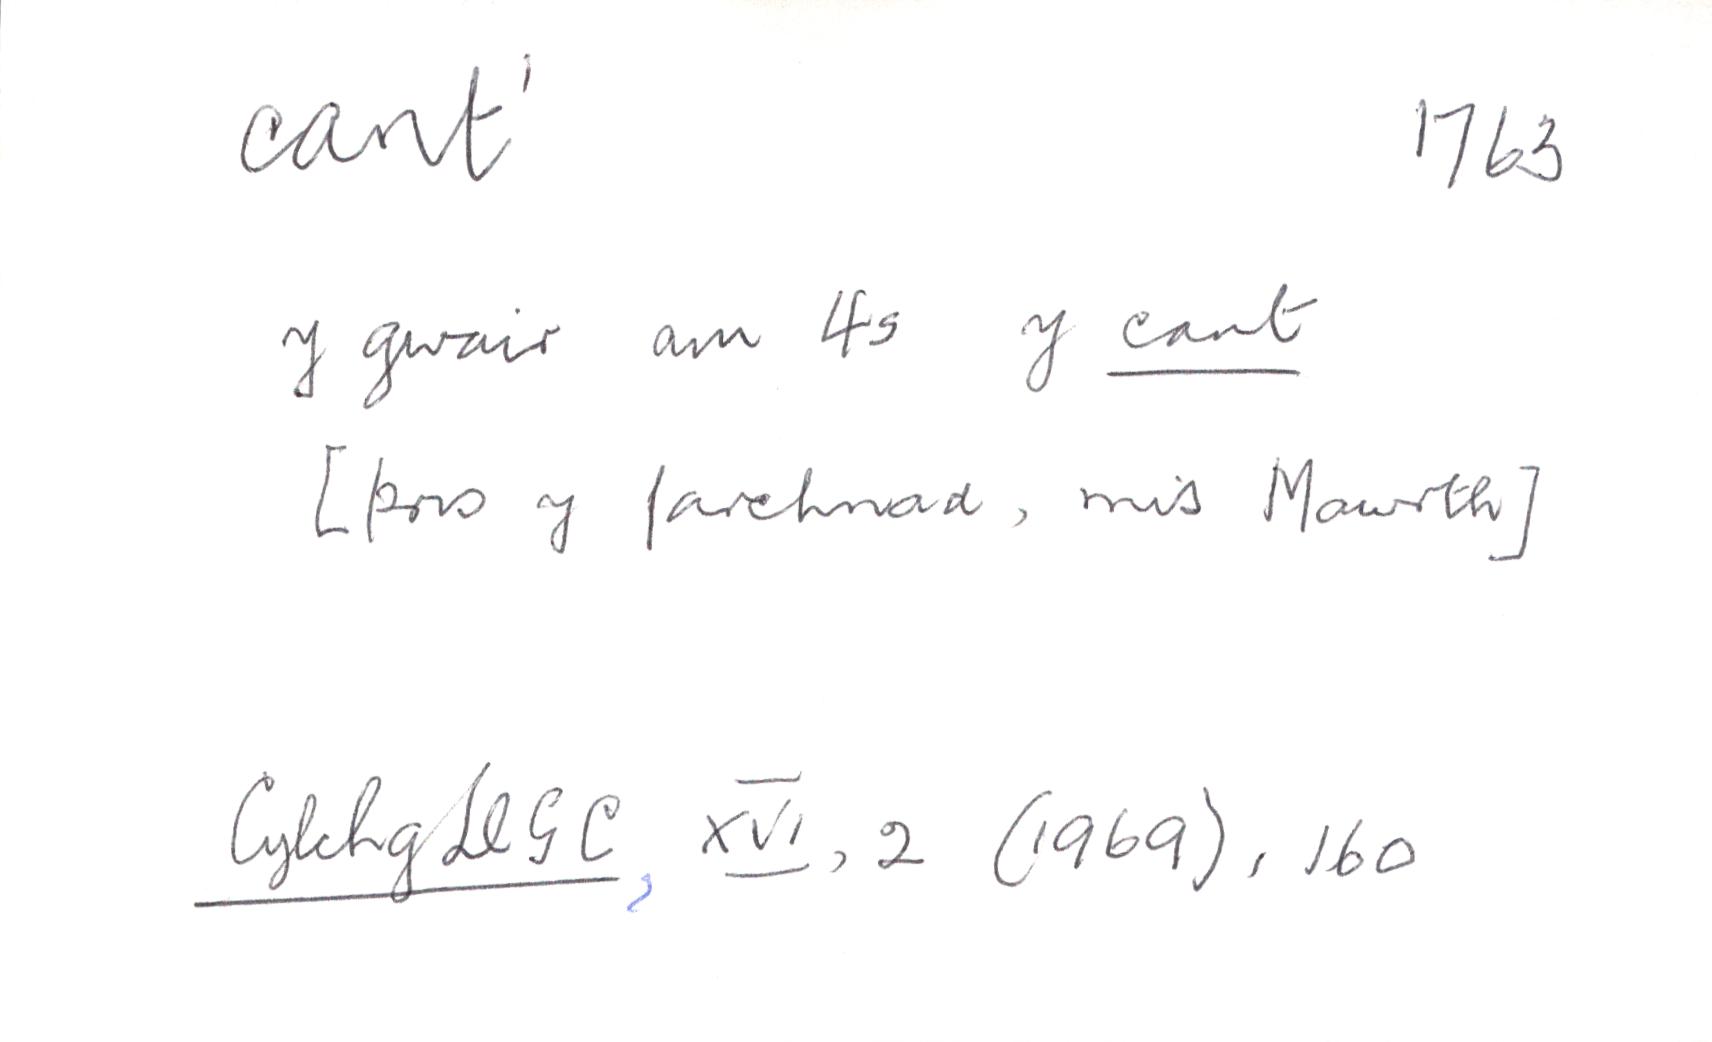 cant¹ 1763
y gwair am 4s y cant
[pris y farchnad, mis Mawrth]
CylchgLlGC, XVI, 2 (1969), 160